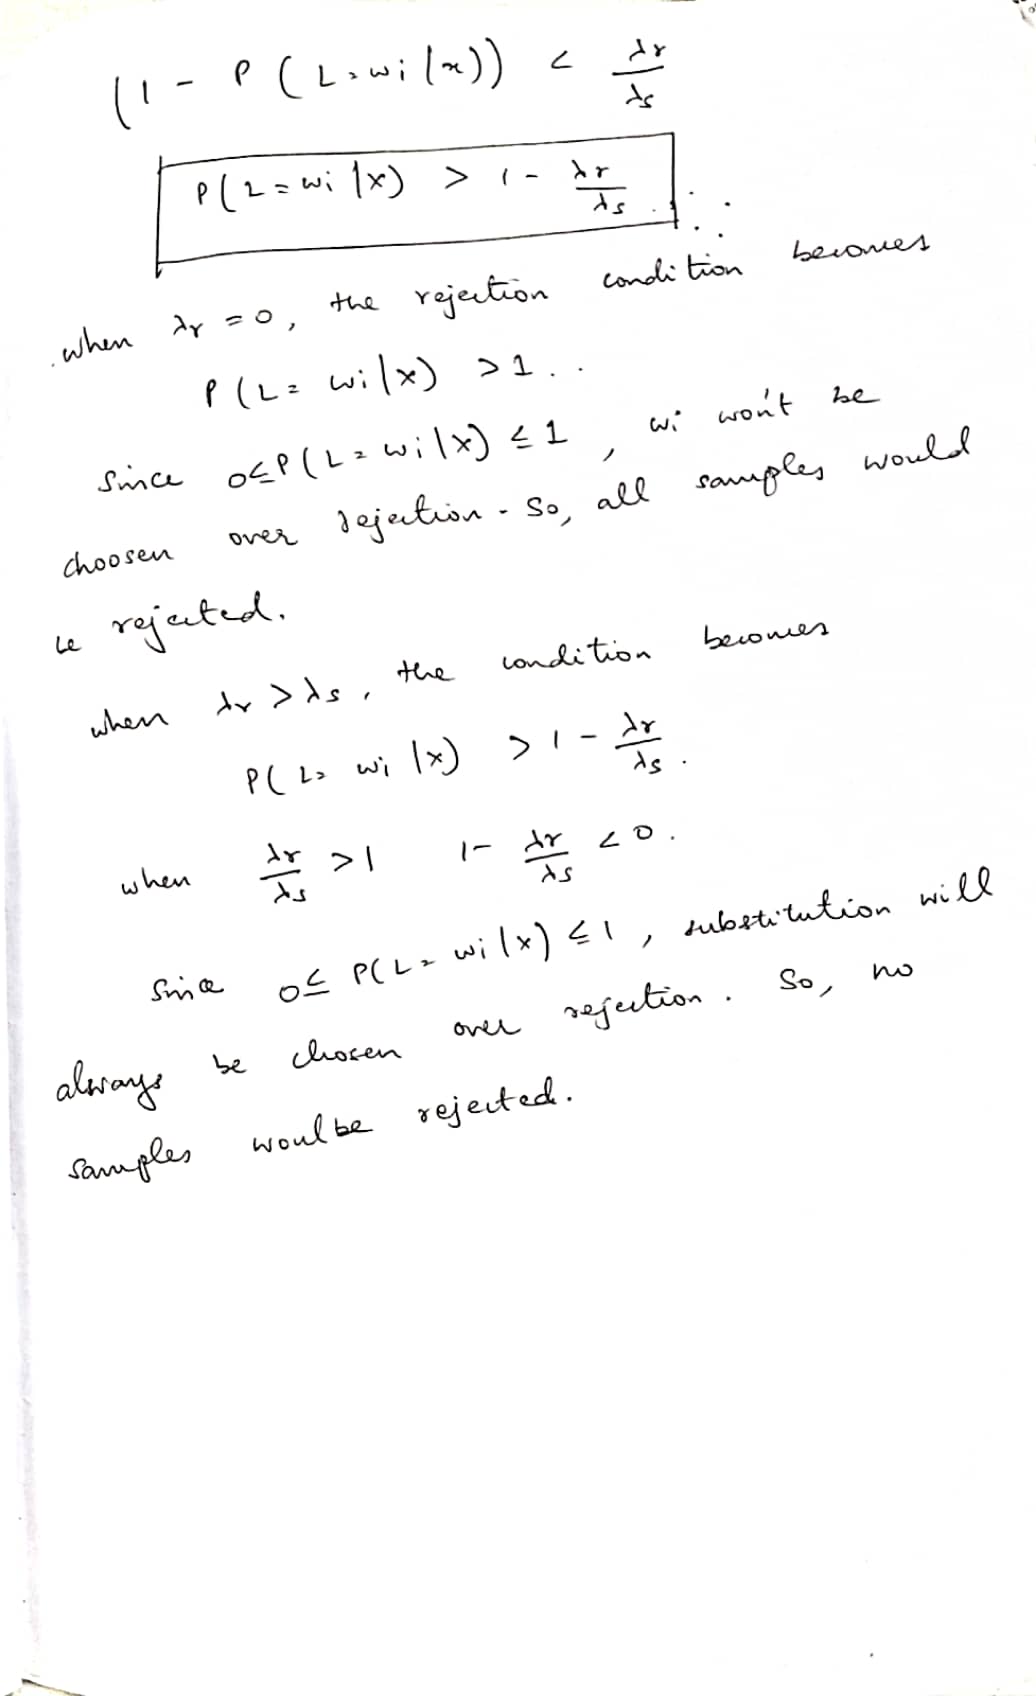 (1 - P(L=wi|x)) < λr/λs
P(L=wi|x) > 1 - λr/λs
when λr = 0, the rejection condition becomes
P(L=wi|x) > 1..
Since 0≤P(L=wi|x) ≤ 1, wi won't be
choosen over rejection. So, all samples would
be rejected.
when λr > λs, the condition becomes
P(L=wi|x) > 1 - λr/λs.
when λr/λs > 1 1- λr/λs < 0.
Since 0≤ P(L=wi|x) ≤ 1, substitution will
always be chosen over rejection. So, no
samples woul be rejected.